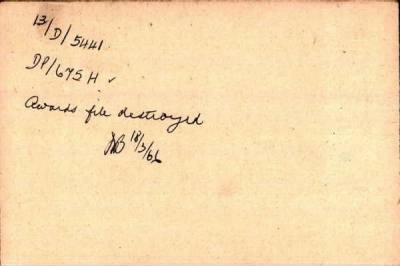 13/D/5441
DP/675 H ✓
Awards file destroyed
18/3/66